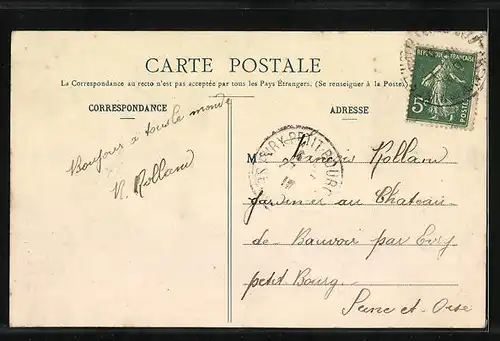 CARTE POSTALE
La Correspondance au recto n'est pas acceptée par tous les Pays Étrangers. (Se renseigner à la Poste)
CORRESPONDANCE
ADRESSE
Bonjour a tous le monde
R. Rolland
RÉPUBLIQUE FRANÇAISE
5c
EVRY PETIT BOURG
M Rolland
jardinier au Chateau
de Bauvoir par Evry
petit-Bourg
Seine et Oise